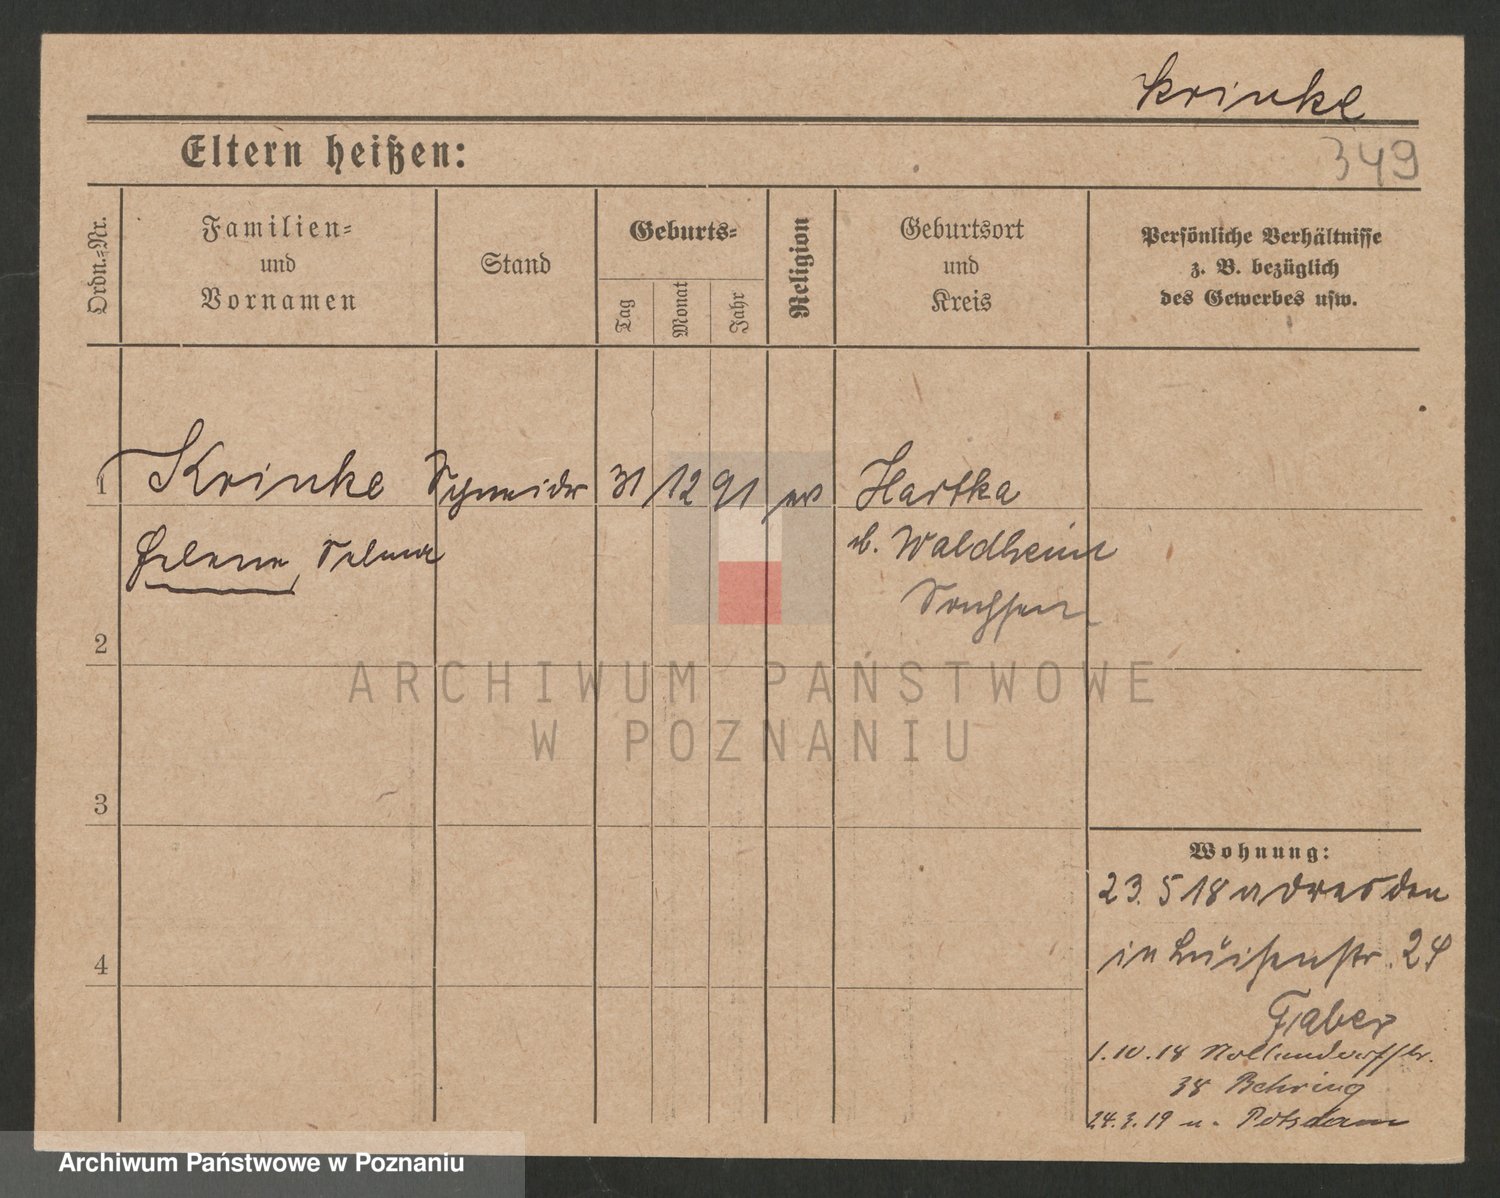 Krinke
Eltern heißen:
349
Ordn.-Nr.
Familien-
und
Vornamen
Stand
Geburts-
Tag
Monat
Jahr
Religion
Geburtsort
und
Kreis
Persönliche Verhältnisse
z. B. bezüglich
des Gewerbes usw.
1
Krinke
Schneider
31
12
91
ev
Hartha
Helene, Selma
b. Waldheim
Sachsen
2
ARCHIWUM PAŃSTWOWE
W POZNANIU
3
4
Wohnung:
23. 5 18 v Dresden
in Luisenstr. 24
Faber
1.10.18 Nollendorfstr.
38 Behring
24.3.19 n. Potsdam
Archiwum Państwowe w Poznaniu